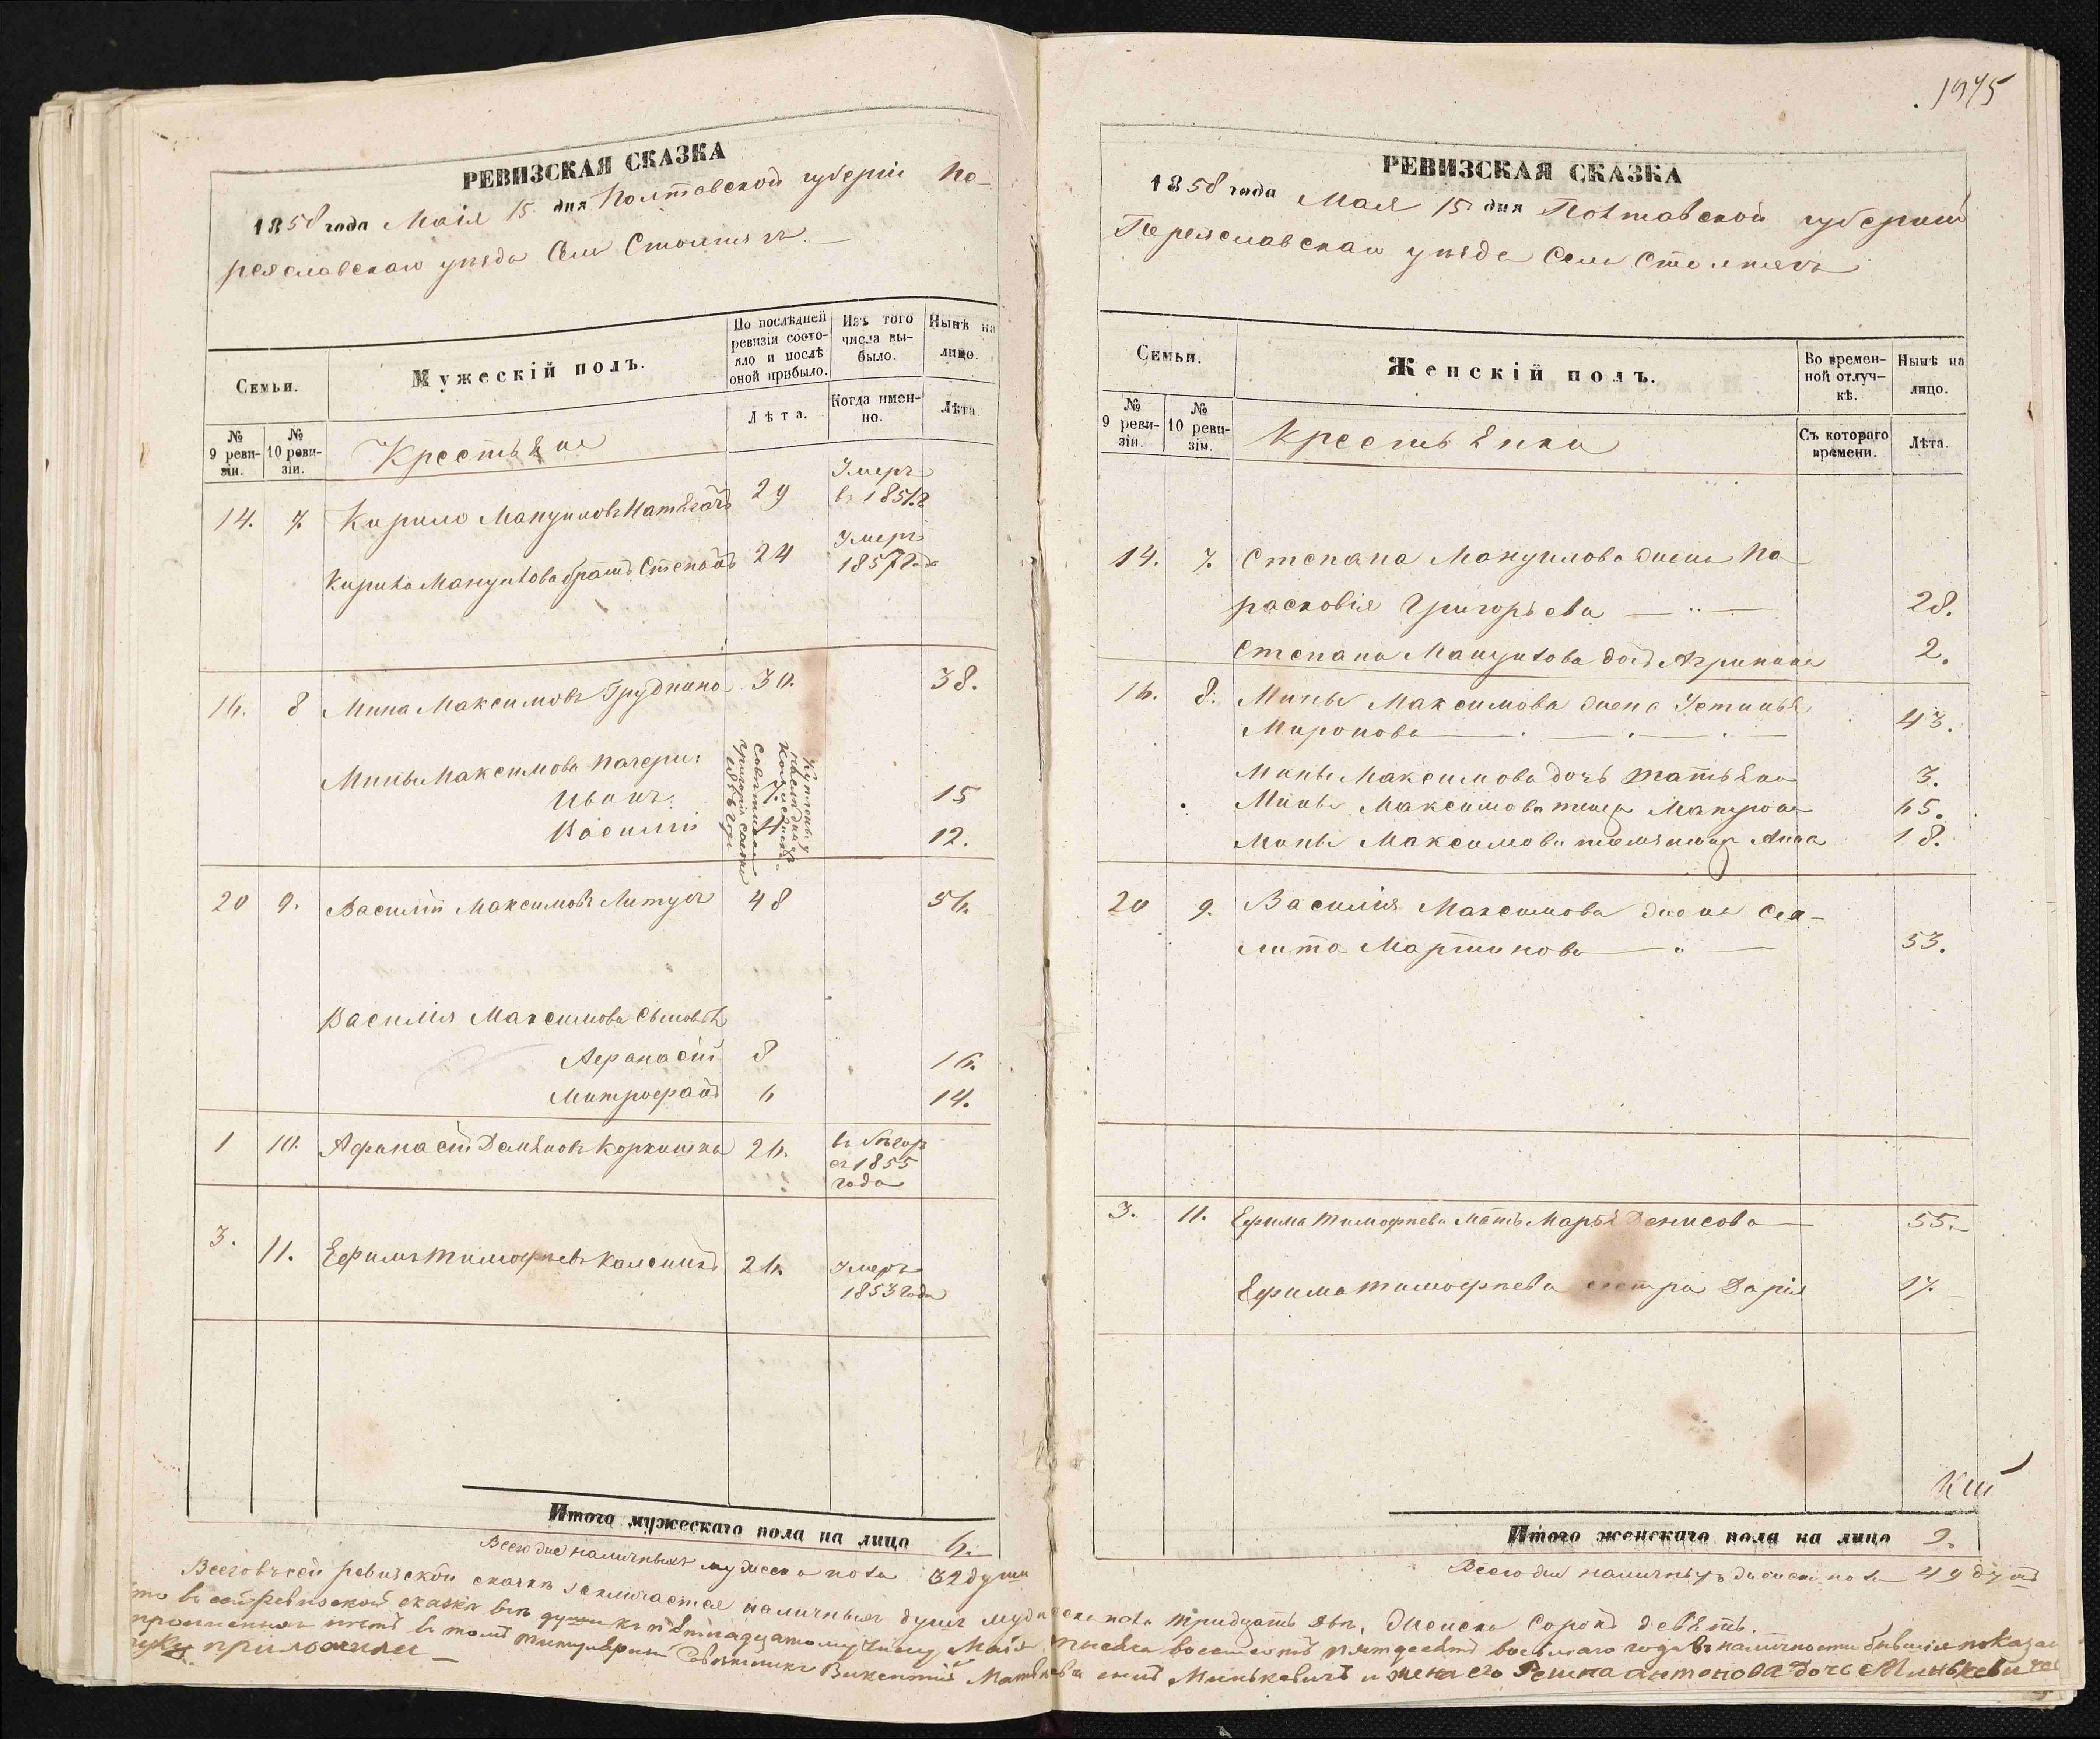 РЕВИЗСКАЯ СКАЗКА
1858 года Маія 15 дня Полтавской губерніи Пе-
реяславскаго уѣзда Села Столпяхъ.
Семьи.
Мужескій полъ.
По послѣдней ревизіи состо-яло и послѣ оной прибыло.
Изъ того числа вы-было.
Нынѣ на лицо.
№ 9 реви-зіи.
№ 10 реви-зіи.
Лѣта.
Когда имен-но.
Лѣта.
Крестьяне
14. 7. Кирило Мануиловъ 29 Умеръ
въ 1851 г.
Кирила Мануилова братъ Степанъ 24 Умеръ
1857 года
16. 8 Мина Максимовъ Грудкина 30. 38.
Мины Максимова
Иванъ 7. 15
Василій 4 12.
20 9. Василій Максимовъ Литусъ 48 56.
Василія Максимова Сыновья
Афанасій 8 16.
Митрофанъ 6 14.
1 10. Афанасій Демяновъ Коркишка 26. въ бѣгахъ
съ 1855
года
3. 11. Ефимъ Тимофѣевъ 26. Умеръ
1853 года
Итого мужескаго пола на лицо 6.
Всего же наличныхъ мужеска пола 32 души
1975
РЕВИЗСКАЯ СКАЗКА
1858 года Мая 15 дня Полтавской губерніи
Переяславскаго уѣзда Села Столпяхъ
Семьи.
Женскій полъ.
Во времен-ной отлуч-кѣ.
Нынѣ на лицо.
№ 9 реви-зіи.
№ 10 реви-зіи.
Съ котораго времени.
Лѣта.
Крестьянки
14. 7. Степана Мануилова жена Па
расковія Григорьева 28.
Степана Мануилова дочь Агрипина 2.
16. 8. Мины Максимова жена Устинья
Миронова 43.
Мины Максимова дочь Татьяна 3.
Мины Максимова теща Матрона 65.
Мины Максимова племяница Анна 18.
20 9. Василія Максимова жена Сек-
лита Мартинова 53.
3. 11. Ефима Тимофѣева Мать Марья Денисова 55.
Ефима Тимофѣева сестра Дарія 17.
Итого женскаго пола на лицо 9.
Всего же наличныхъ женска пола 49 душъ
Всего въ сей ревизской сказкѣ заключается наличныхъ душъ мужеска пола тридцать двѣ, Женска Сорокъ девять.
что въ сей ревизской сказкѣ всѣ души къ пятнадцатому числу Маія тысяча восемьсотъ пятдесятъ восьмаго года въ наличности бывшія показаны
нѣтъ въ томъ Титулярный Совѣтникъ Викентій Матвѣевъ сынъ Минькевичъ и жена его антонова дочь Минькевичева
руку приложили